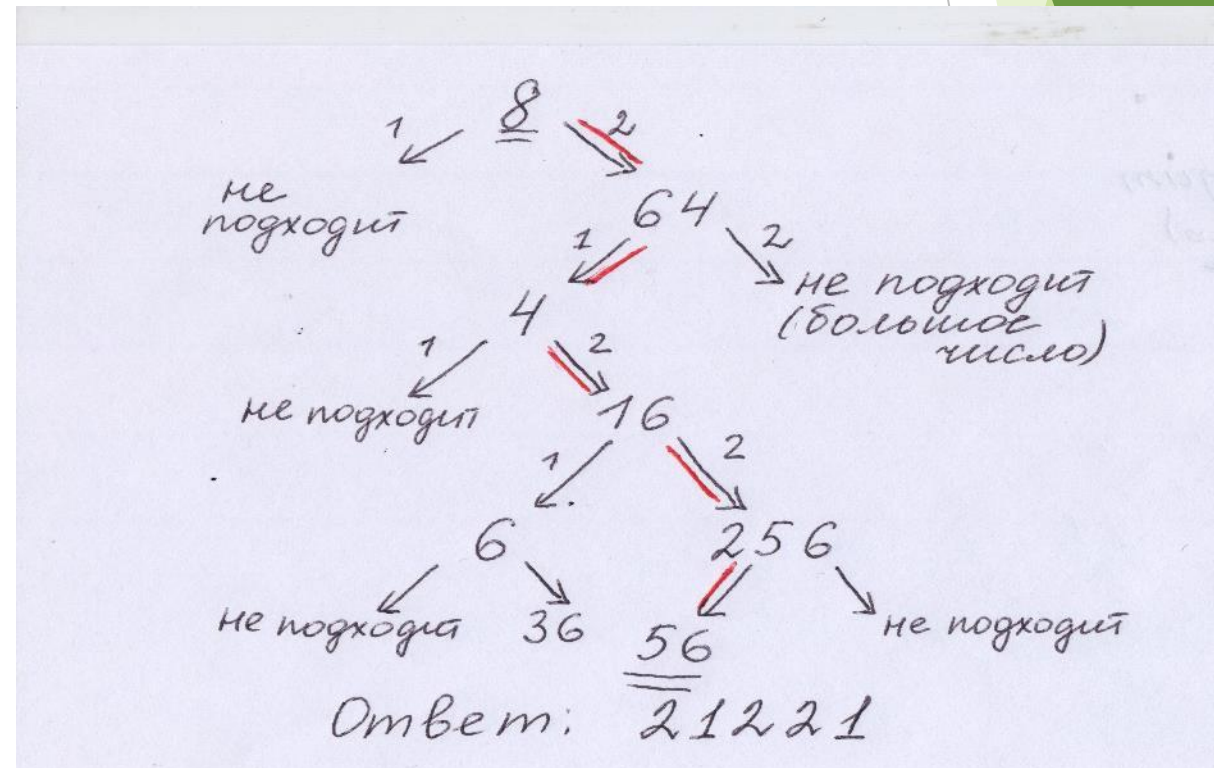 8
1 2
не
подходит
64
1 2
не подходит
(большое
число)
4
1 2
не подходит
16
1 2
6 256
не подходит 36 56 не подходит
Ответ: 21221